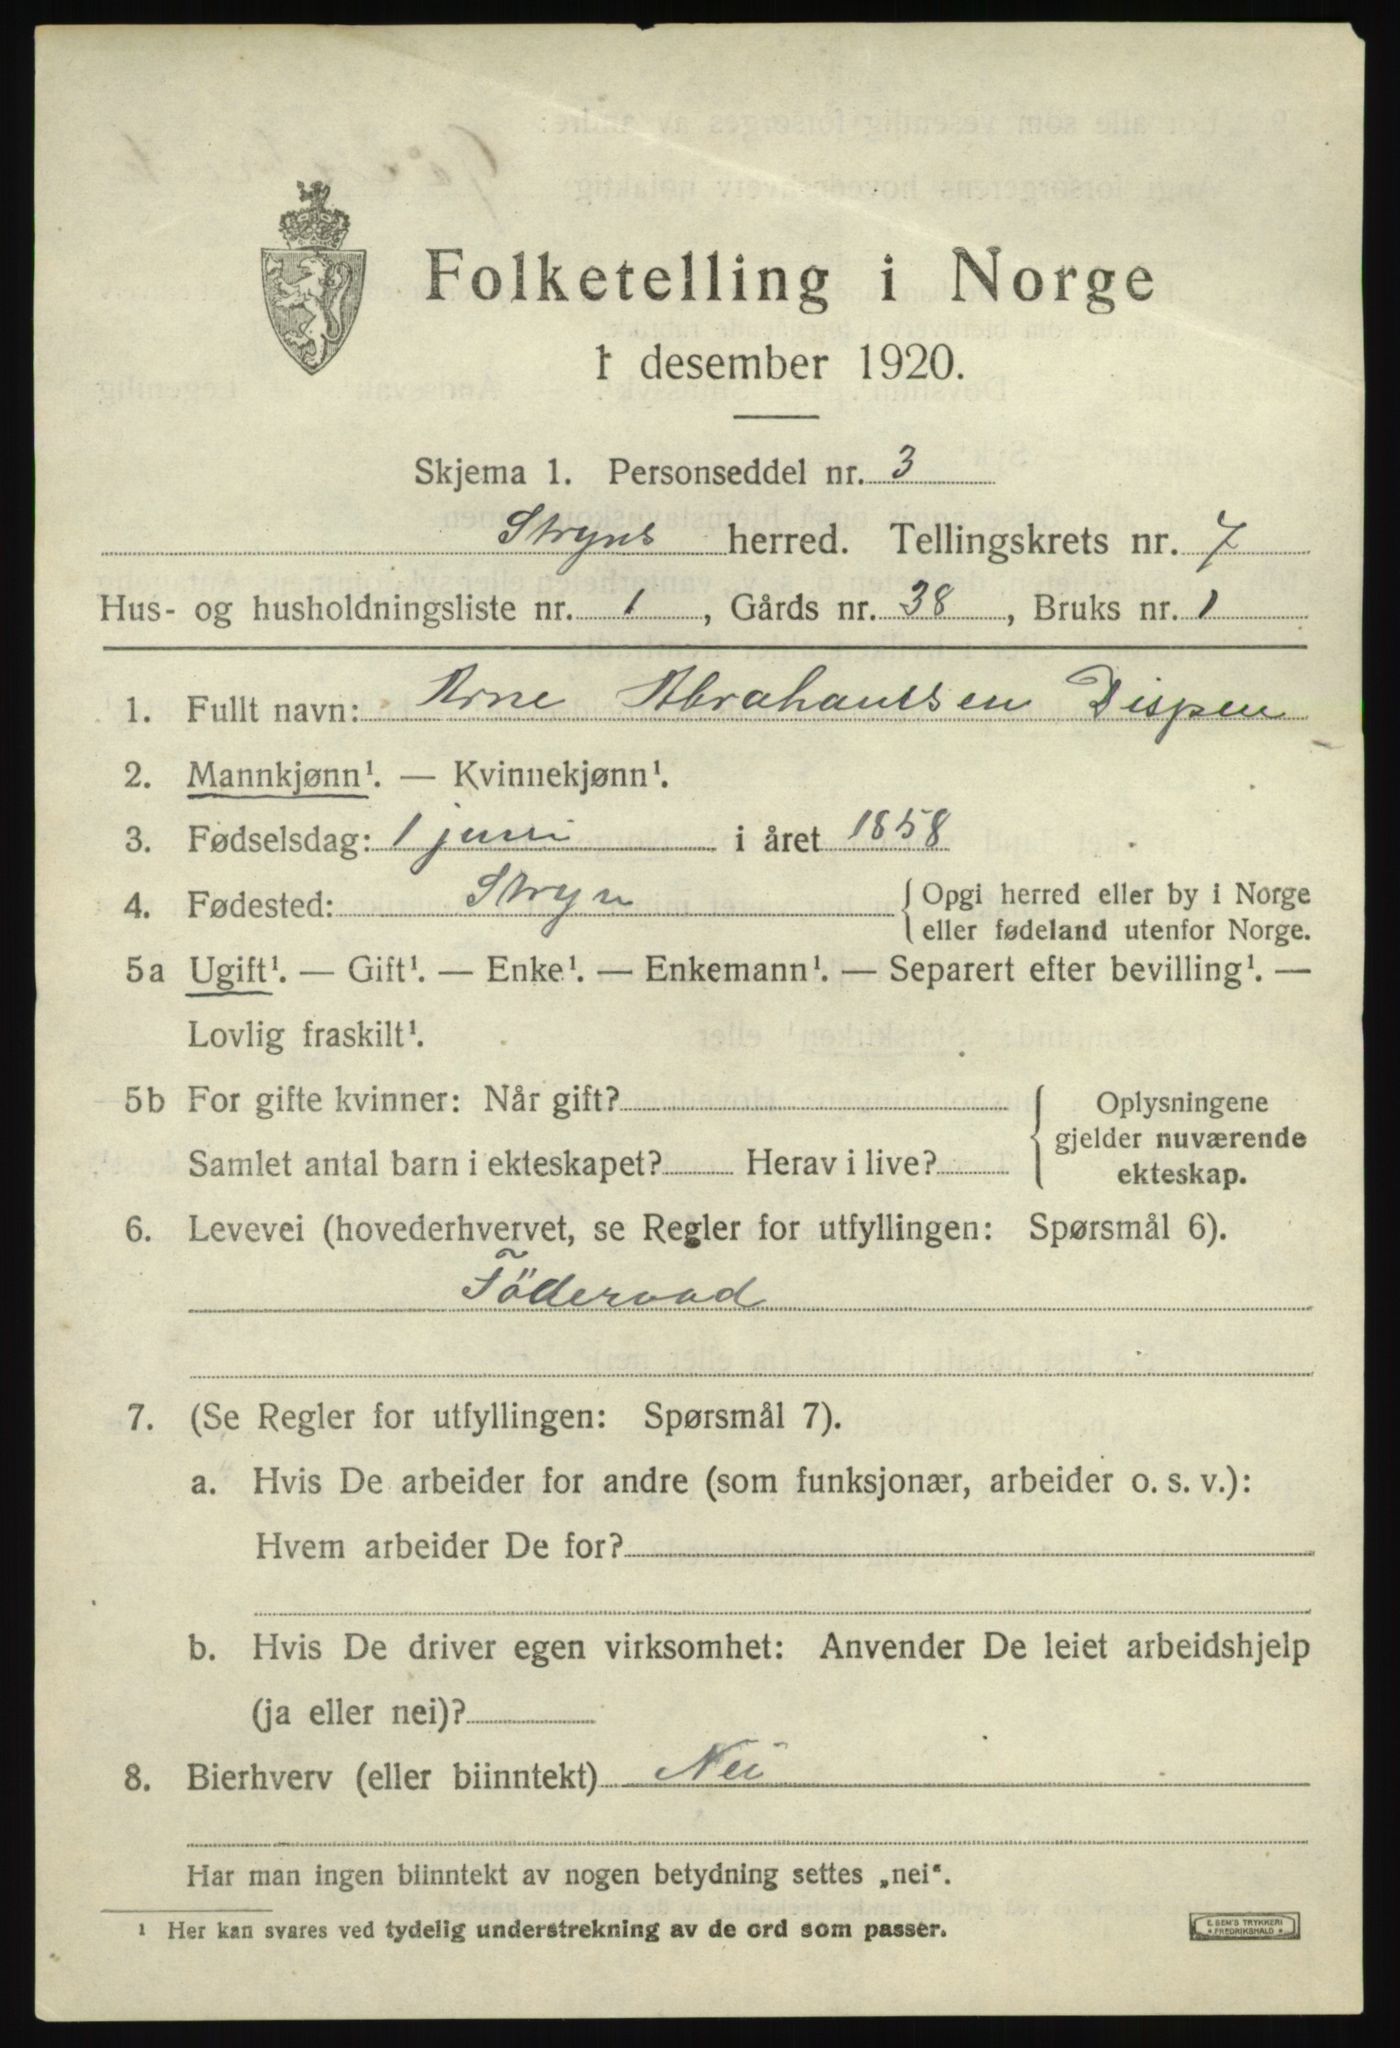 Folketelling i Norge
1 desember 1920.
Skjema 1. Personseddel nr. 3
Stryns herred. Tellingskrets nr. 7
Hus- og husholdningsliste nr. 1, Gårds nr. 38, Bruks nr. 1
1. Fullt navn: Arne Abrahamssen Dispen
2. Mannkjønn¹. — Kvinnekjønn¹.
3. Fødselsdag: 1 juni i året 1858
4. Fødested: Stryn { Opgi herred eller by i Norge
eller fødeland utenfor Norge.
5a Ugift¹. — Gift¹. — Enke¹. — Enkemann¹. — Separert efter bevilling¹. —
Lovlig fraskilt¹.
5b For gifte kvinner: Når gift? { Oplysningene
gjelder nuværende
Samlet antal barn i ekteskapet? Herav i live? ekteskap.
6. Levevei (hovederhvervet, se Regler for utfyllingen: Spørsmål 6).
Föderaad
7. (Se Regler for utfyllingen: Spørsmål 7).
a. Hvis De arbeider for andre (som funksjonær, arbeider o. s. v.):
Hvem arbeider De for?
b. Hvis De driver egen virksomhet: Anvender De leiet arbeidshjelp
(ja eller nei)?
8. Bierhverv (eller biinntekt) Nei
Har man ingen biinntekt av nogen betydning settes „nei".
¹ Her kan svares ved tydelig understrekning av de ord som passer.
E. SEM'S TRYKKERI
FREDRIKSHALD